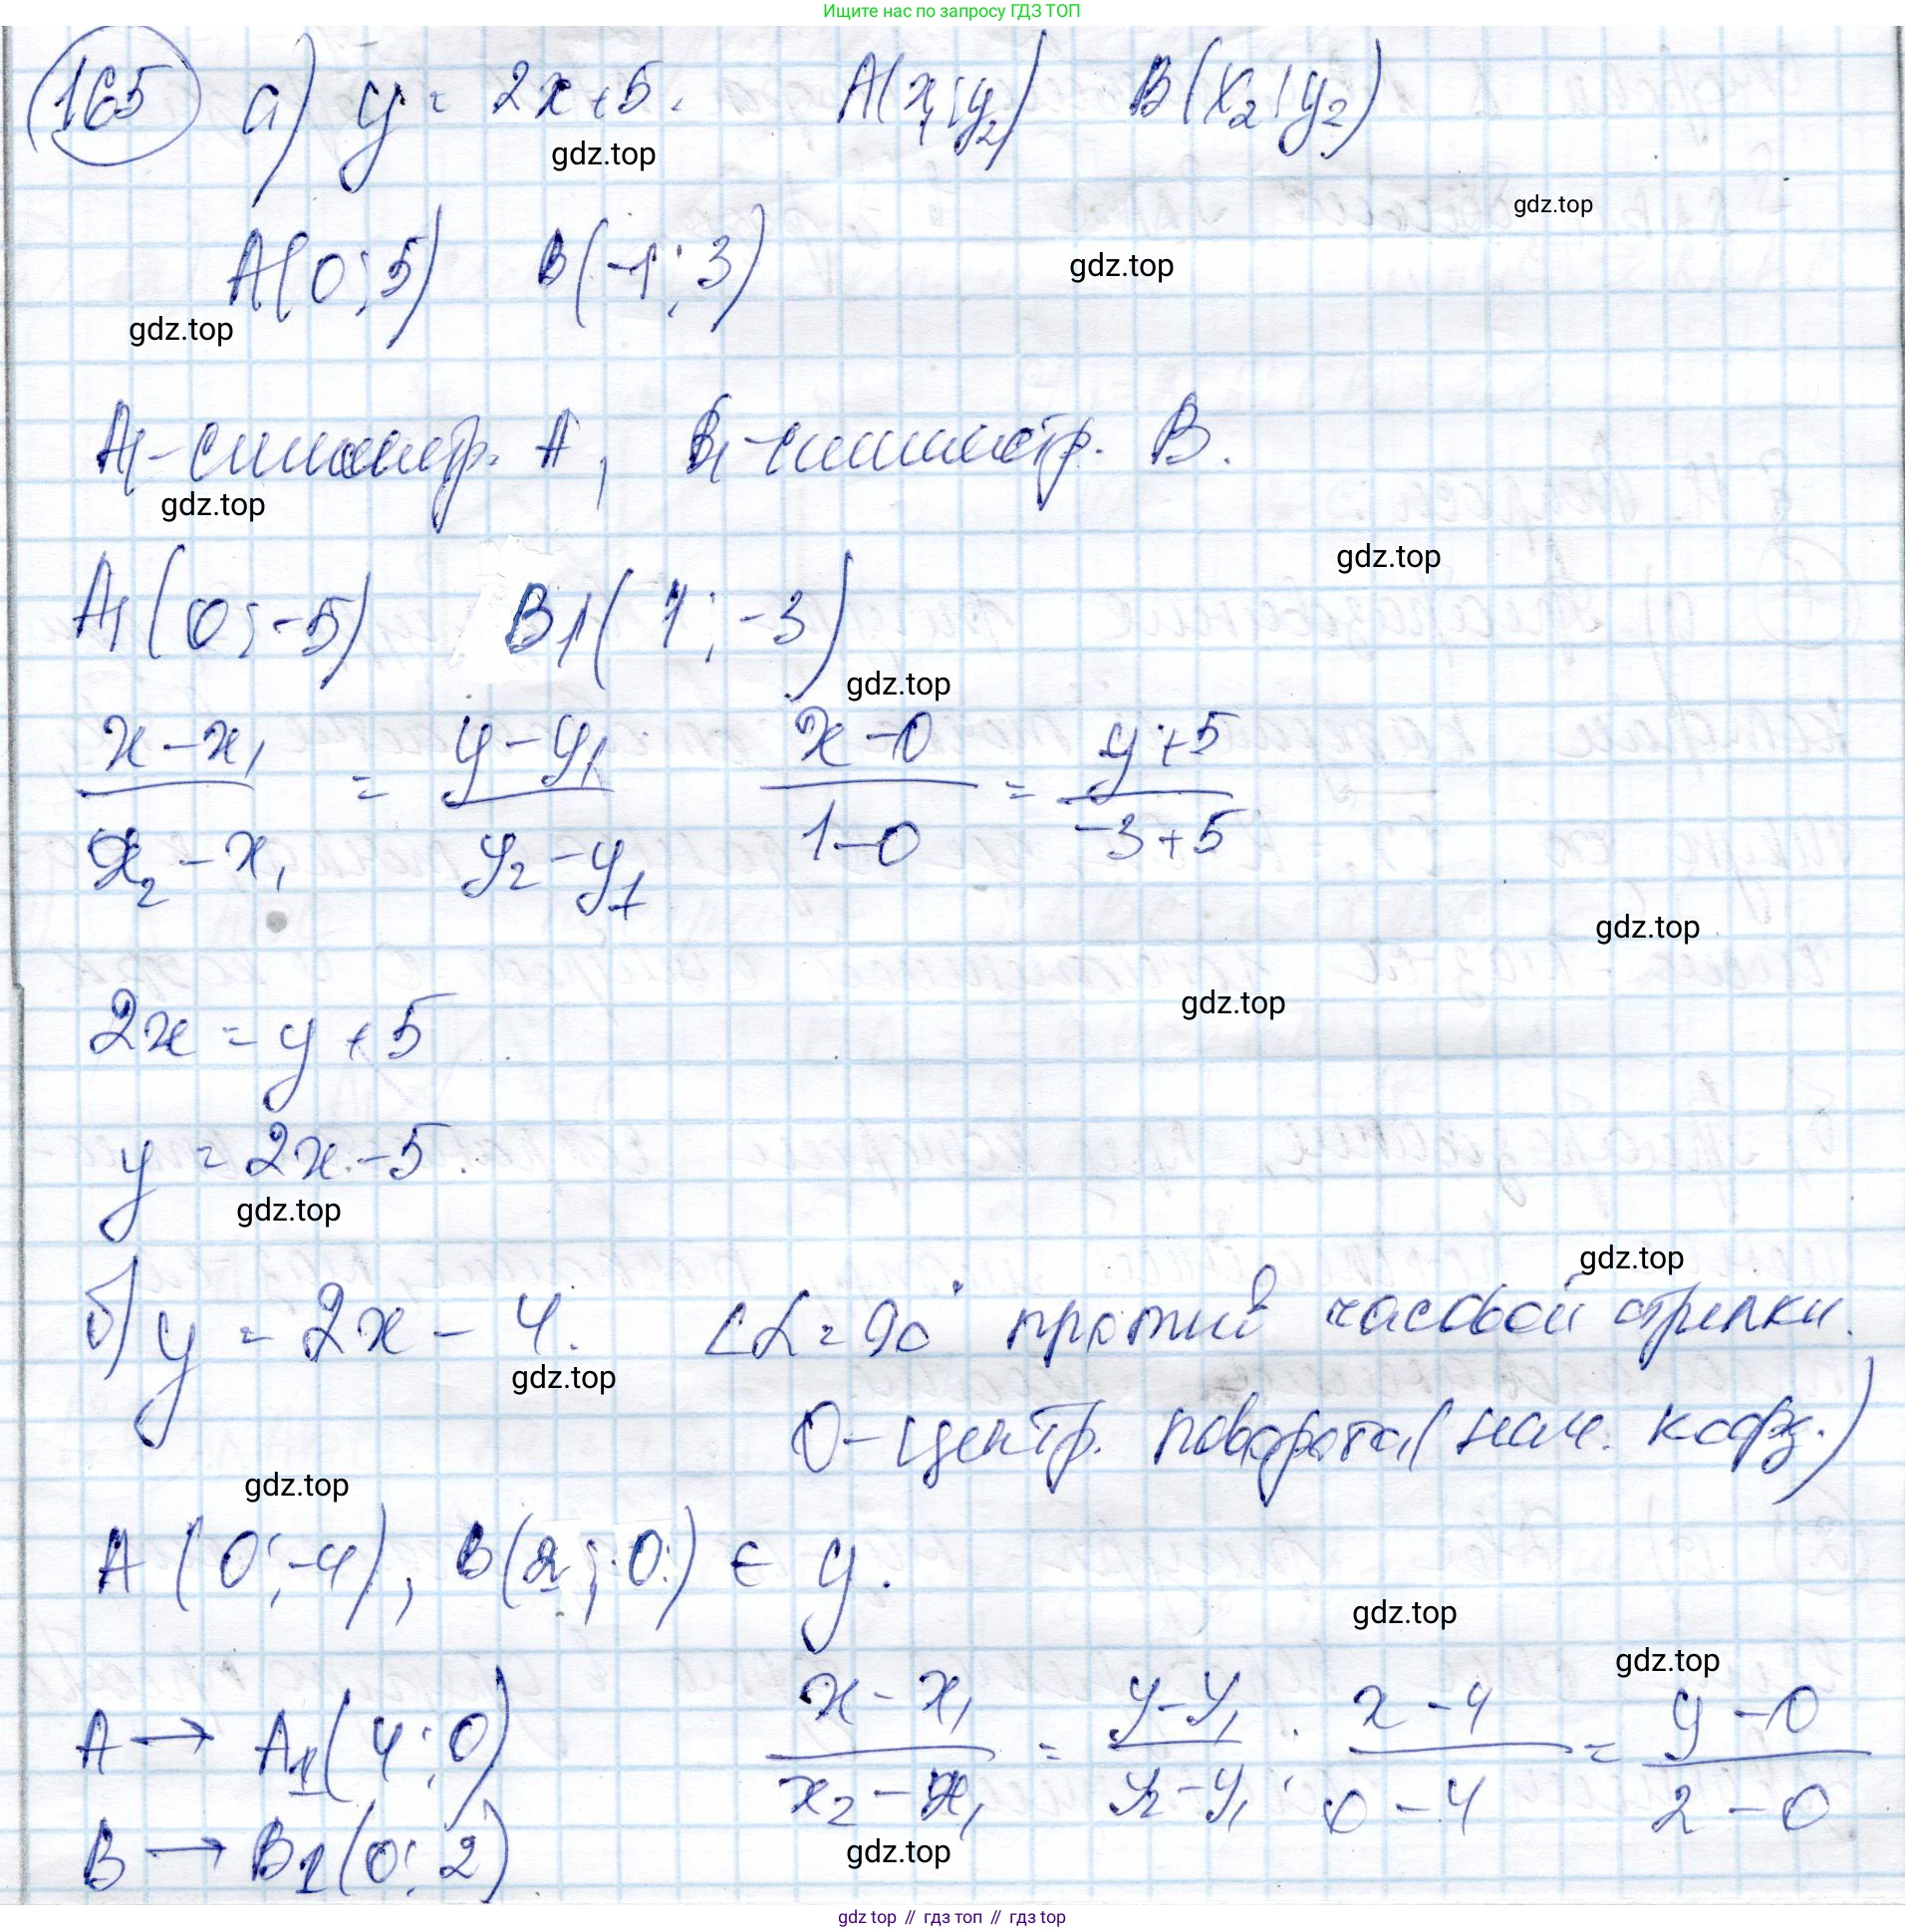 Ищите нас по запросу ГДЗ ТОП
165 а) y = 2x + 5. A(x₁; y₂) B(x₂; y₂)
gdz.top
gdz.top
A(0; 5) B(-1; 3)
gdz.top
gdz.top
A₁-симметр. A, B₁-симметр. B.
gdz.top
gdz.top
A₁(0; -5) B₁(1; -3)
gdz.top
(x - x₁)/(x₂ - x₁) = (y - y₁)/(y₂ - y₁) (x - 0)/(1 - 0) = (y + 5)/(-3 + 5)
gdz.top
gdz.top
2x = y + 5
y = 2x - 5.
gdz.top
gdz.top
б) y = 2x - 4. ∠α = 90° против часовой стрелки.
gdz.top
О-центр. поворота (нач. коорд.)
gdz.top
A(0; -4), B(2; 0) ∈ y.
gdz.top
gdz.top
A → A₁(4; 0) (x - x₁)/(x₂ - x₁) = (y - y₁)/(y₂ - y₁); (x - 4)/(0 - 4) = (y - 0)/(2 - 0)
B → B₁(0; 2)
gdz.top
gdz top // гдз топ // гдз top